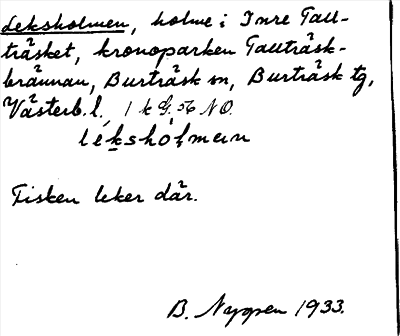 Leksholmen, holme i Inre Tall-
träsket, kronoparken Tallträsk-
brännan, Burträsk sn, Burträsk tg,
Västerb. l., 1 k G. 56 NO.
leksholmen
Fisken leker där.
B. Nyppen 1933.